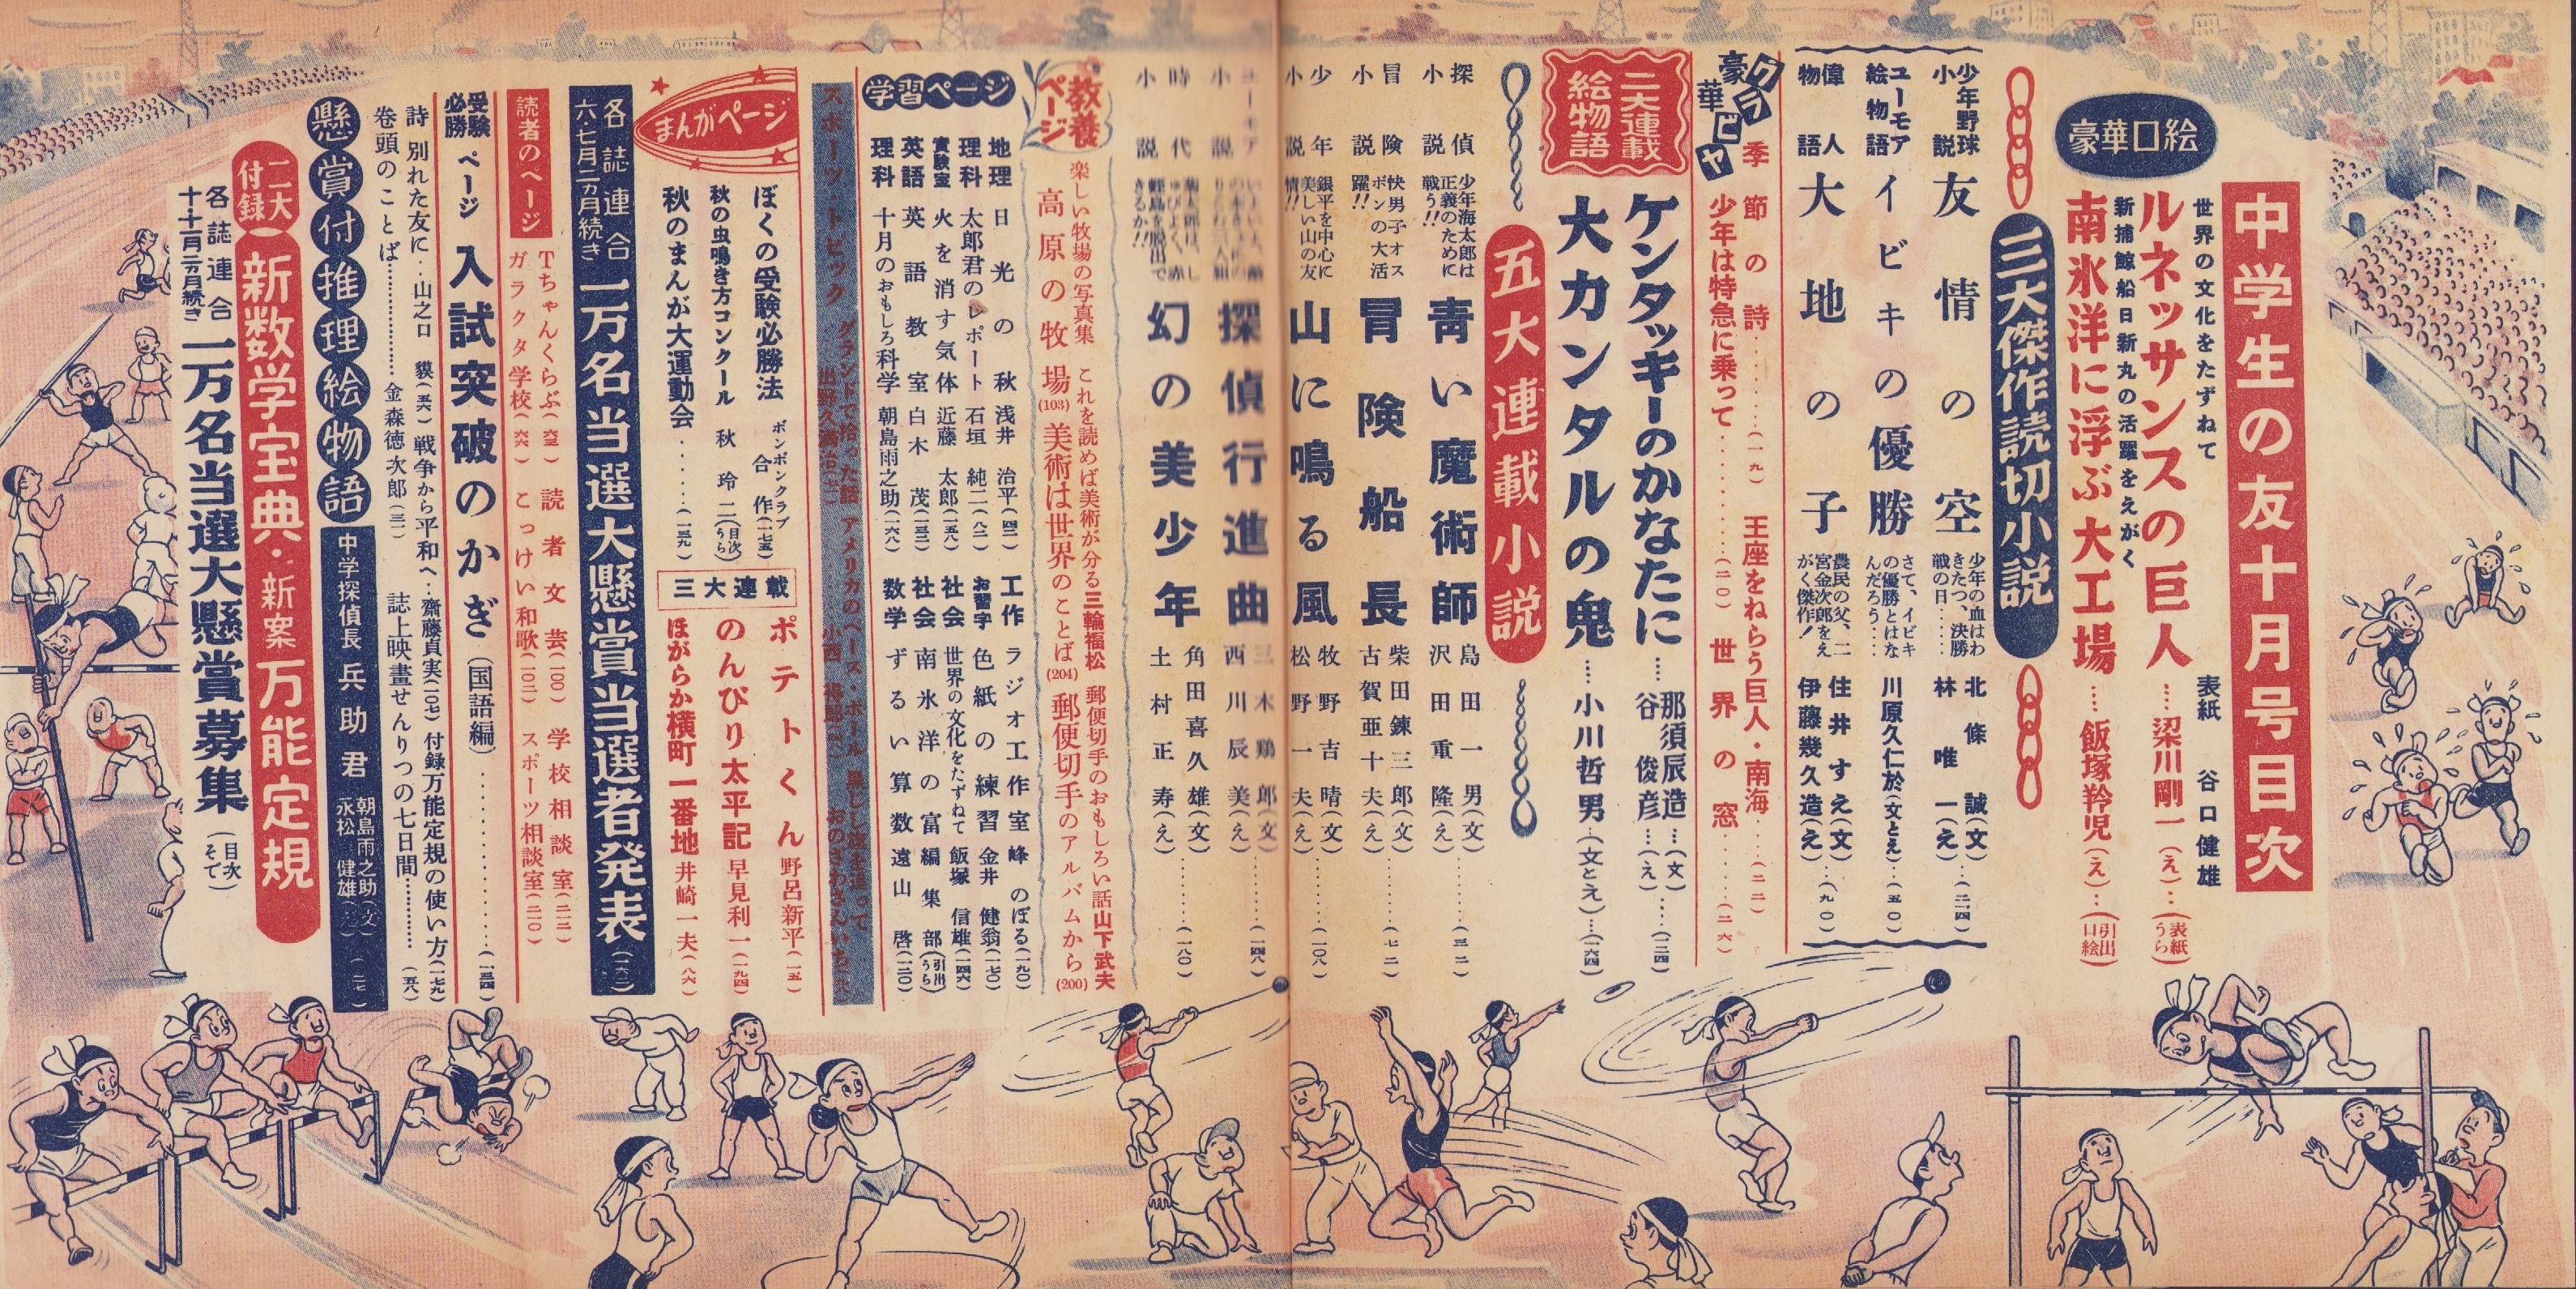 中学生の友十月号目次
表紙 谷口健雄
豪華口絵
世界の文化をたずねて
ルネッサンスの巨人……梁川剛一(え)…(表紙うら)
新捕鯨船日新丸の活躍をえがく
南氷洋に浮ぶ大工場……飯塚羚児(え)…(引出口絵)
三大傑作読切小説
少年野球小説 友情の空 少年の血はわきたつ、決勝戦の日…… 北條誠(文) 林唯一(え)…(二四)
ユーモア絵物語 イビキの優勝 さて、イビキの優勝とはなんだろう… 川原久仁於(文とえ)…(五〇)
偉人物語 大地の子 農民の父、二宮金次郎をえがく傑作! 住井すえ(文) 伊藤幾久造(え)…(九〇)
豪華グラビヤ
季節の詩……(一九) 王座をねらう巨人・南海……(二二)
少年は特急に乗って……(二〇) 世界の窓……(二六)
二大連載絵物語
ケンタッキーのかなたに……那須辰造…(文) 谷俊彦…(え)……(二四)
大カンタルの鬼……小川哲男…(文とえ)…(一六四)
五大連載小説
探偵小説 少年海太郎は正義のために戦う!! 青い魔術師 島田一男(文) 沢田重隆(え)……(三二)
冒険小説 快男子オスボンの大活躍!! 冒険船長 柴田錬三郎(文) 古賀亜十夫(え)……(七二)
少年小説 銀平を中心に美しい山の友情!! 山に鳴る風 牧野吉晴(文) 松野一夫(え)……(一〇八)
探偵行進曲 三木鶏郎(文) 西川辰美(え)……(一四八)
時代小説 幻の美少年 角田喜久雄(文) 土村正寿(え)……(一八〇)
教養ページ
楽しい牧場の写真集 高原の牧場(103)
これを読めば美術が分る 三輪福松 美術は世界のことば(204)
郵便切手のおもしろい話 山下武夫 郵便切手のアルバムから(200)
学習ページ
地理 日光の秋 浅井治平(四二)
理科 太郎君のレポート 石垣純二(八二)
実験室 火を消す気体 近藤太郎(一五八)
英語 英語教室 白木茂(一三二)
理科 十月のおもしろ科学 朝島雨之助(一六六)
工作 ラジオ工作室 峰のぼる(一九〇)
お習字 色紙の練習 金井健翁(一七〇)
社会 世界の文化をたずねて 飯塚信雄(一四六)
社会 南氷洋の富 編集部(引出うら)
数学 ずるい算数 遠山啓(一二〇)
スポーツ・トピック
グランドで拾った話
アメリカのベース・ボール 小西得郎
まんがページ
ぼくの受験必勝法 ボンボンクラブ合作(一七五)
秋の虫鳴き方コンクール 秋玲二(目次うら)
秋のまんが大運動会……(一三九)
三大連載
ポテトくん 野呂新平(一五)
のんびり太平記 早見利一(一九四)
ほがらか横町一番地 井崎一夫(八六)
各誌連合 六・七月二カ月続き 一万名当選大懸賞当選者発表(一六二)
読者のページ
Tちゃんくらぶ(六三) 読者文芸(100) 学校相談室(二一二)
ガラクタ学校(六六) こっけい和歌(一〇二) スポーツ相談室(二一〇)
受験必勝ページ 入試突破のかぎ(国語編)……(一三四)
詩 別れた友に…山之口貘(五六) 戦争から平和へ…齋藤貞実(一〇七) 付録万能定規の使い方(一七九)
巻頭のことば……金森徳次郎(三一) 誌上映畫せんりつの七日間……(五八)
懸賞付推理絵物語
中学探偵長 兵助君 朝島雨之助(文) 永松健雄(え)(二七)
二大付録 新数学宝典・新案万能定規
各誌連合 十・十一月二カ月続き 一万名当選大懸賞募集(目次そで)